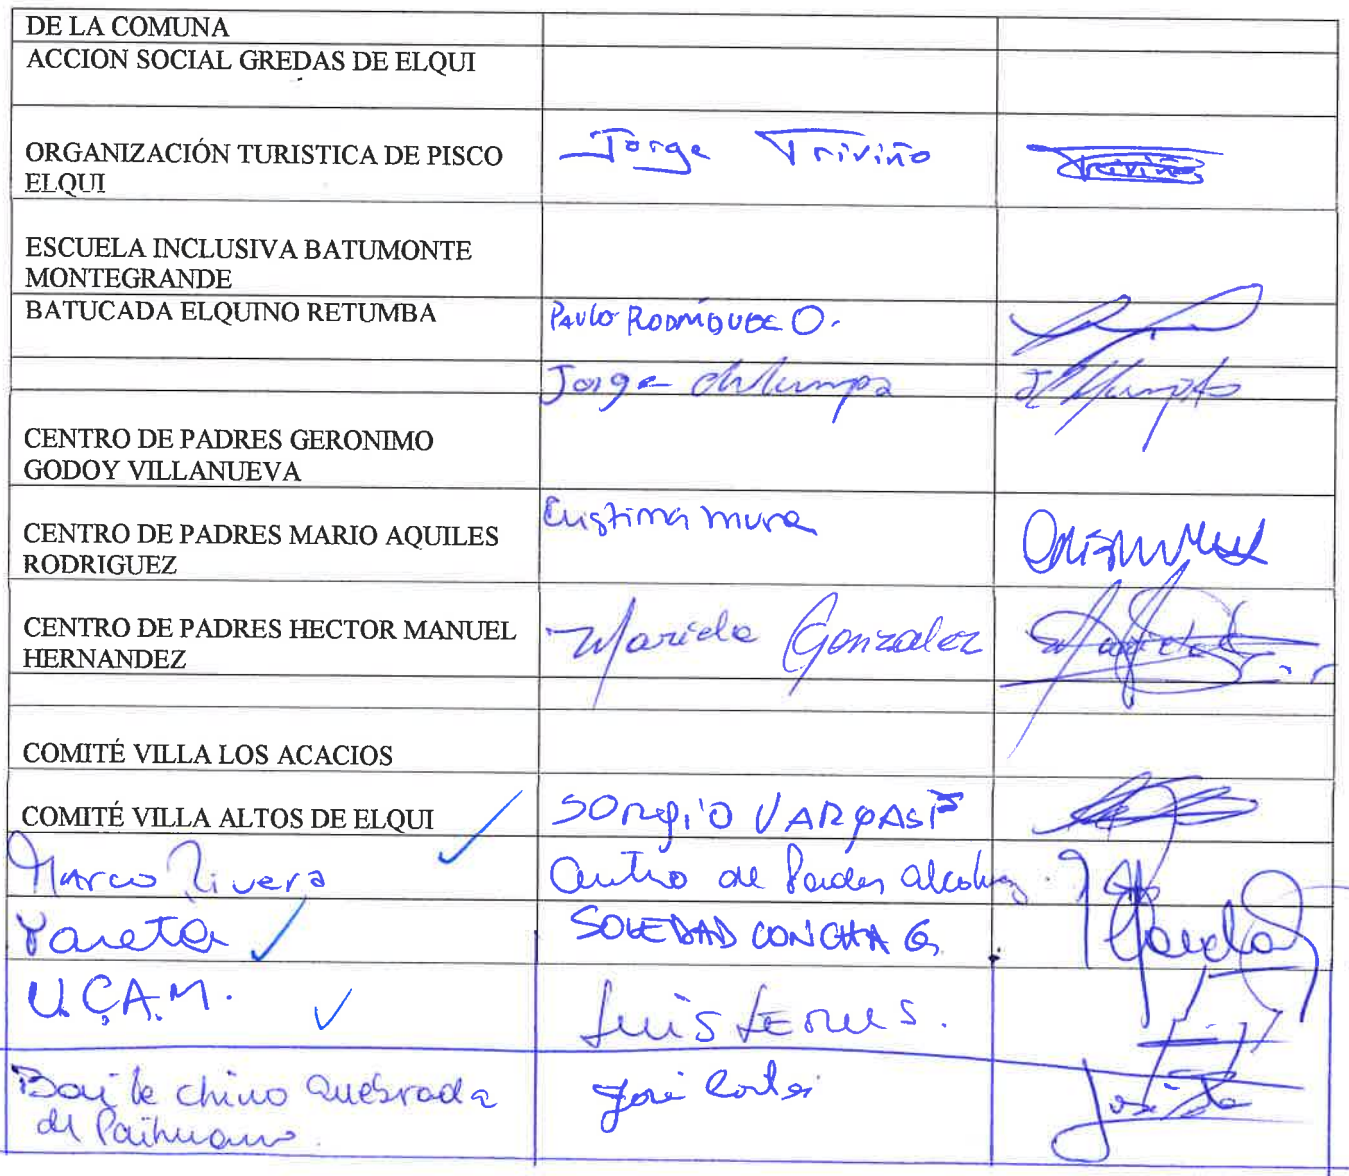 DE LA COMUNA
ACCION SOCIAL GREDAS DE ELQUI
ORGANIZACIÓN TURISTICA DE PISCO
ELQUI
Jorge Triviño
Triviño
ESCUELA INCLUSIVA BATUMONTE
MONTEGRANDE
BATUCADA ELQUINO RETUMBA
PAULO RODRIGUEZ O.
Jorge
CENTRO DE PADRES GERONIMO
GODOY VILLANUEVA
CENTRO DE PADRES MARIO AQUILES
RODRIGUEZ
Cristina Mura
CENTRO DE PADRES HECTOR MANUEL
HERNANDEZ
Mariela Gonzalez
COMITÉ VILLA LOS ACACIOS
COMITÉ VILLA ALTOS DE ELQUI
SERGIO VARGAS
Marco Rivera
Centro de Padres
SOLEDAD CONCHA G.
U.C.A.M.
Luis
Baile chino Quebrada
de Paihuano.
José Cortes